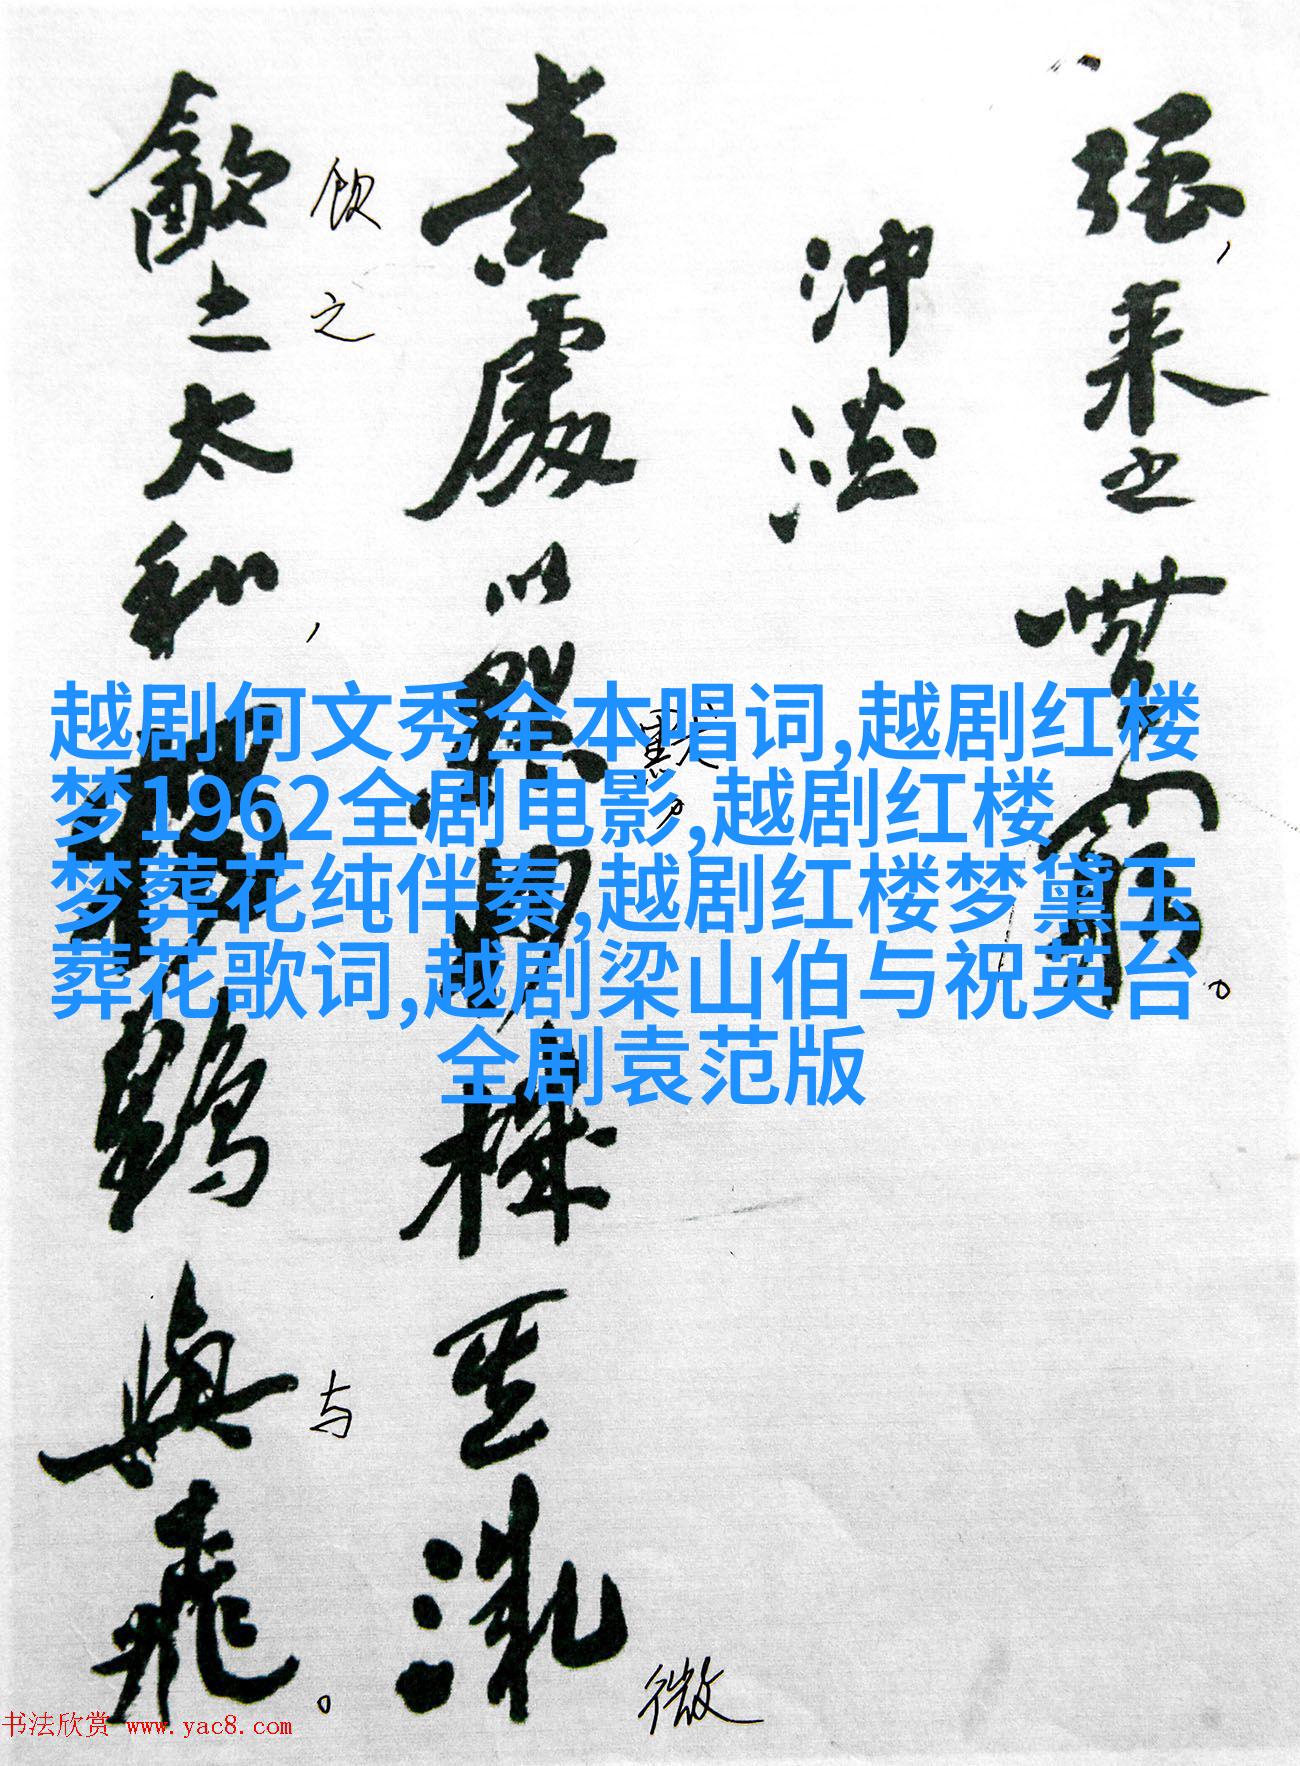 强,来之無窮。
冲淡
素處以默,妙機其微
默。
微
飲之太和,獨鶴與飛。
饮
之
与
越剧何文秀全本唱词,越剧红楼
梦1962全剧电影,越剧红楼
梦葬花纯伴奏,越剧红楼梦黛玉
葬花歌词,越剧梁山伯与祝英台
全剧袁范版
书法欣赏 www.yac8.com